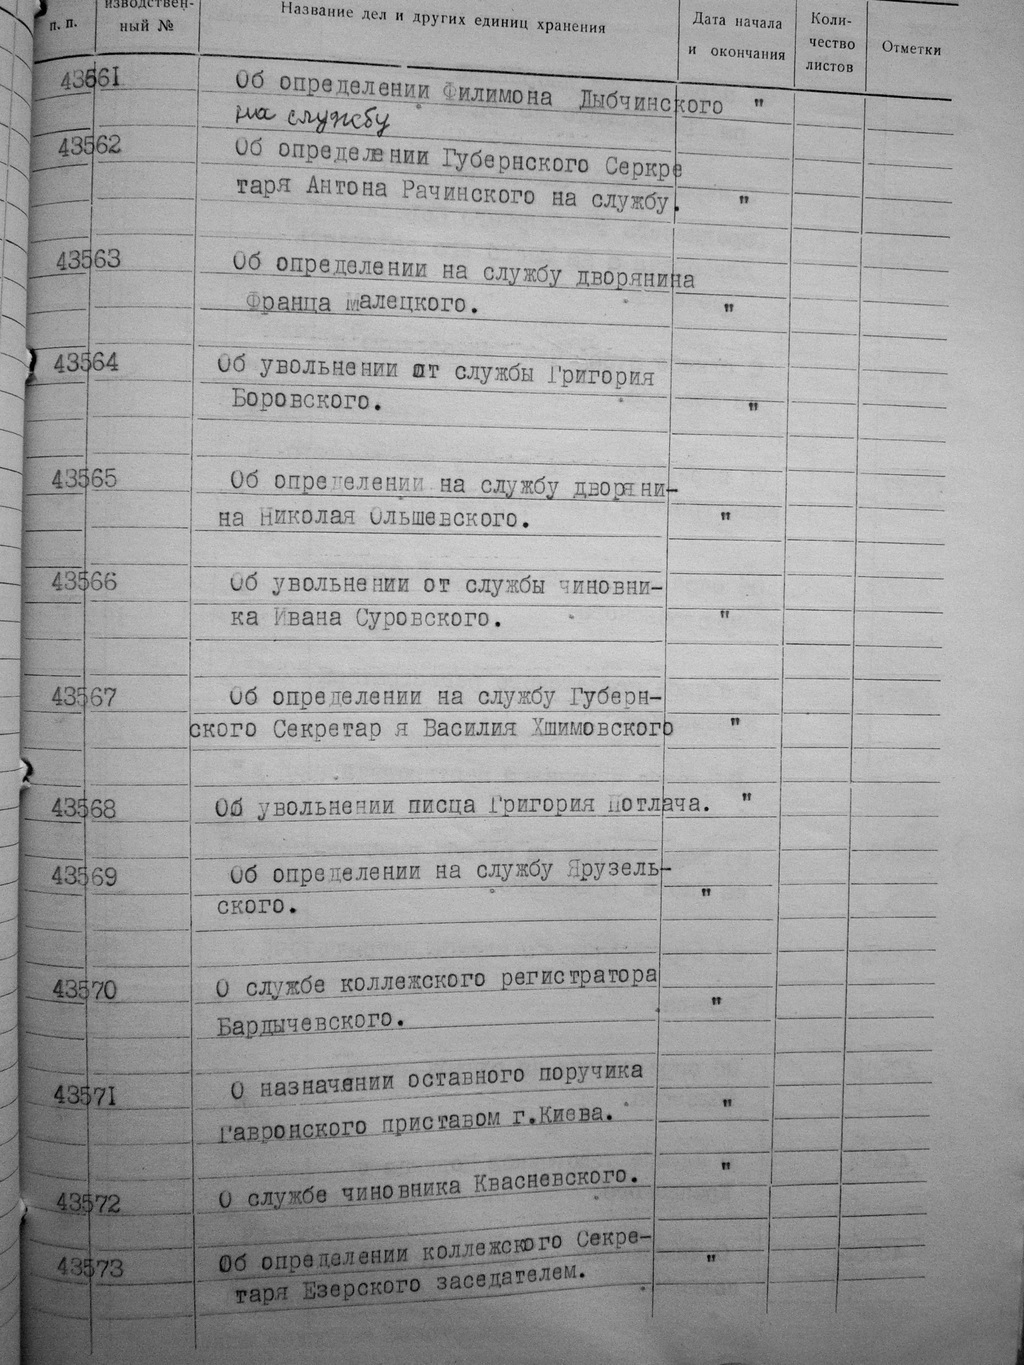 п. п.
изводствен-
ный №
Название дел и других единиц хранения
Дата начала
и окончания
Коли-
чество
листов
Отметки
43561 Об определении Филимона Дыбчинского "
на службу
43562 Об определении Губернского Серкре
таря Антона Рачинского на службу. "
43563 Об определении на службу дворянина
Франца Малецкого. "
43564 Об увольнении от службы Григория
Боровского. "
43565 Об определении на службу дворяни-
на Николая Ольшевского. "
43566 Об увольнении от службы чиновни-
ка Ивана Суровского. "
43567 Об определении на службу Губерн-
ского Секретар я Василия Хшимовского "
43568 Об увольнении писца Григория Потлача. "
43569 Об определении на службу Ярузель-
ского. "
43570 О службе коллежского регистратора
Бардычевского. "
43571 О назначении оставного поручика
Гавронского приставом г.Киева. "
43572 О службе чиновника Квасневского. "
43573 Об определении коллежского Секре-
таря Езерского заседателем. "